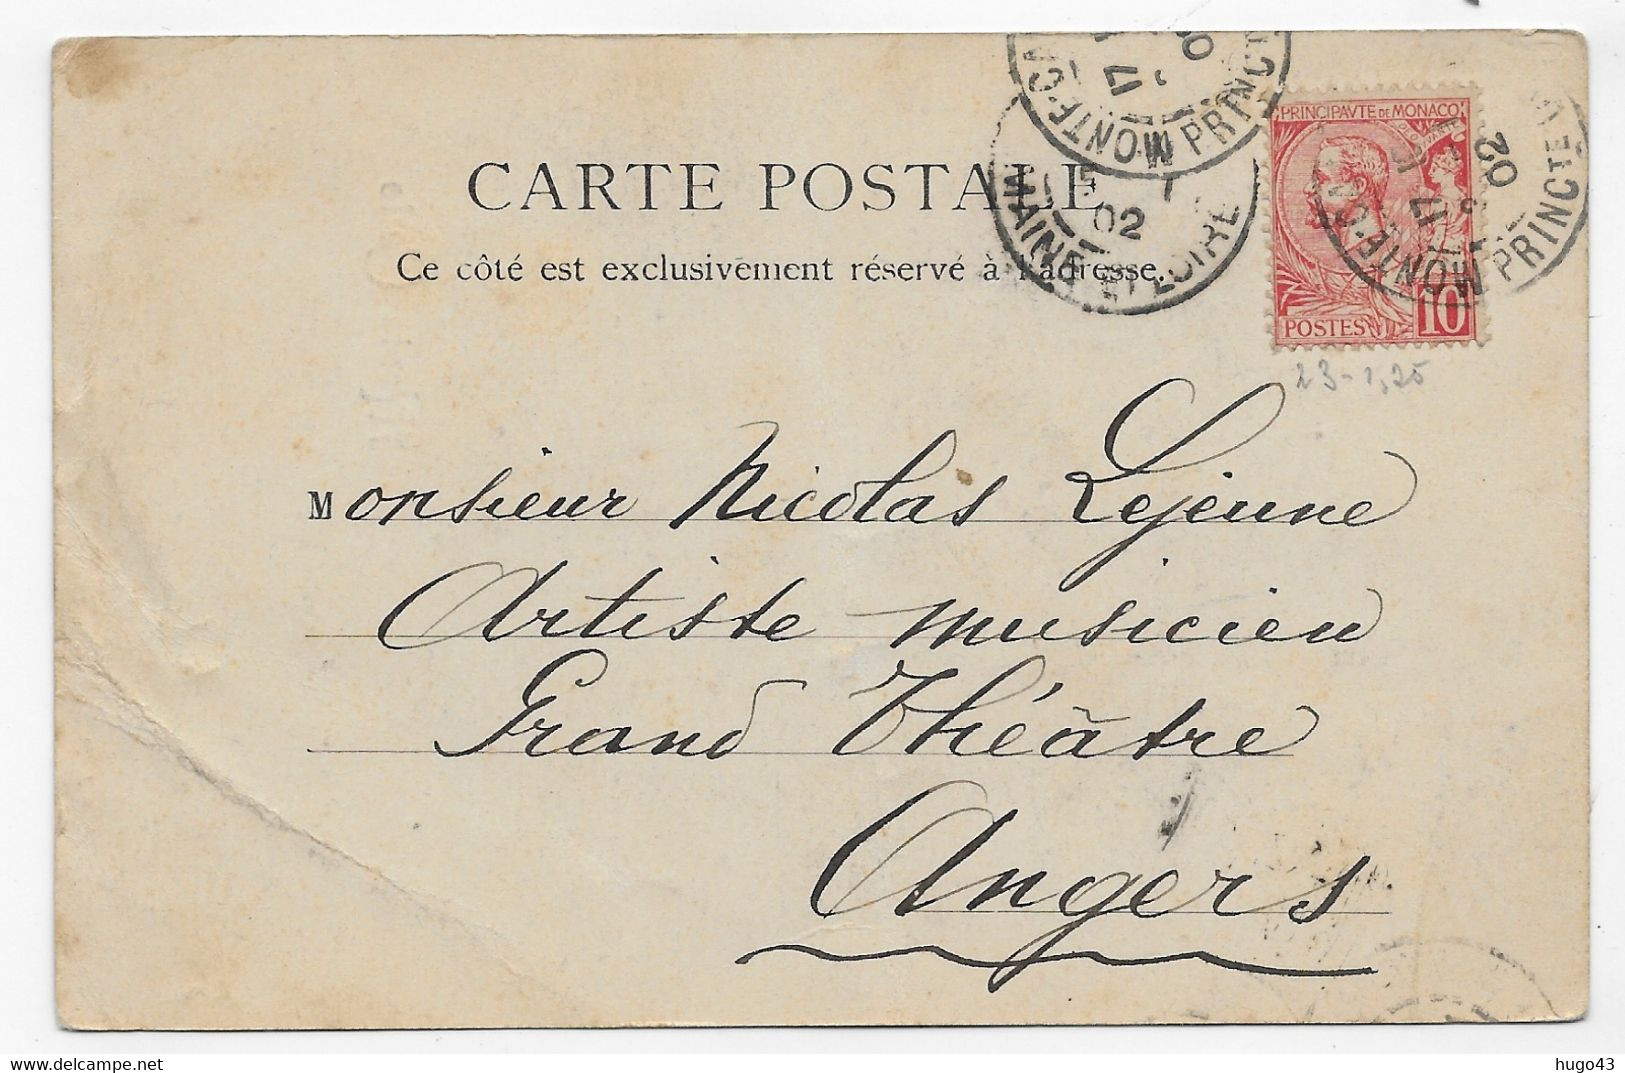 CARTE POSTALE
Ce côté est exclusivement réservé à l'adresse.
PRINCIPAVTE DE MONACO
POSTES 10
MONTE-CA PRINCTE
17
02
MAINE ET LOIRE
02
MONTE-C PRINCTE
17
02
23-1,25
Monsieur Nicolas Lejeune
Artiste musicien
Grand Théâtre
Angers
www.delcampe.net
hugo43